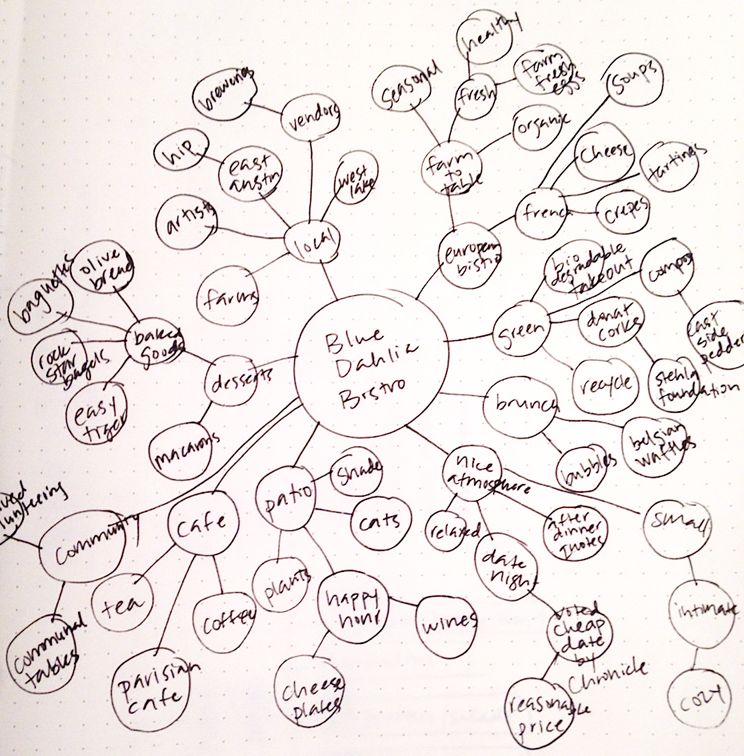 Blue
Dahlia
Bistro
local
vendors
breweries
east
austin
hip
west
lake
artists
farms
european
bistro
farm
to
table
seasonal
fresh
healthy
farm
fresh
eggs
organic
french
soups
cheese
tartines
crepes
green
bio
degradable
takeout
compost
east
side
donat
corks
stehlin
foundation
recycle
brunch
belgian
waffles
bubbles
nice
atmosphere
relaxed
date
night
voted
cheap
date
by
Chronicle
reasonable
price
after
dinner
quotes
small
intimate
cozy
patio
shade
cats
plants
happy
hour
wines
cheese
plates
cafe
tea
parisian
cafe
coffee
community
communal
tables
desserts
macarons
baked
goods
olive
bread
baguettes
rock
star
bagels
easy
tiger